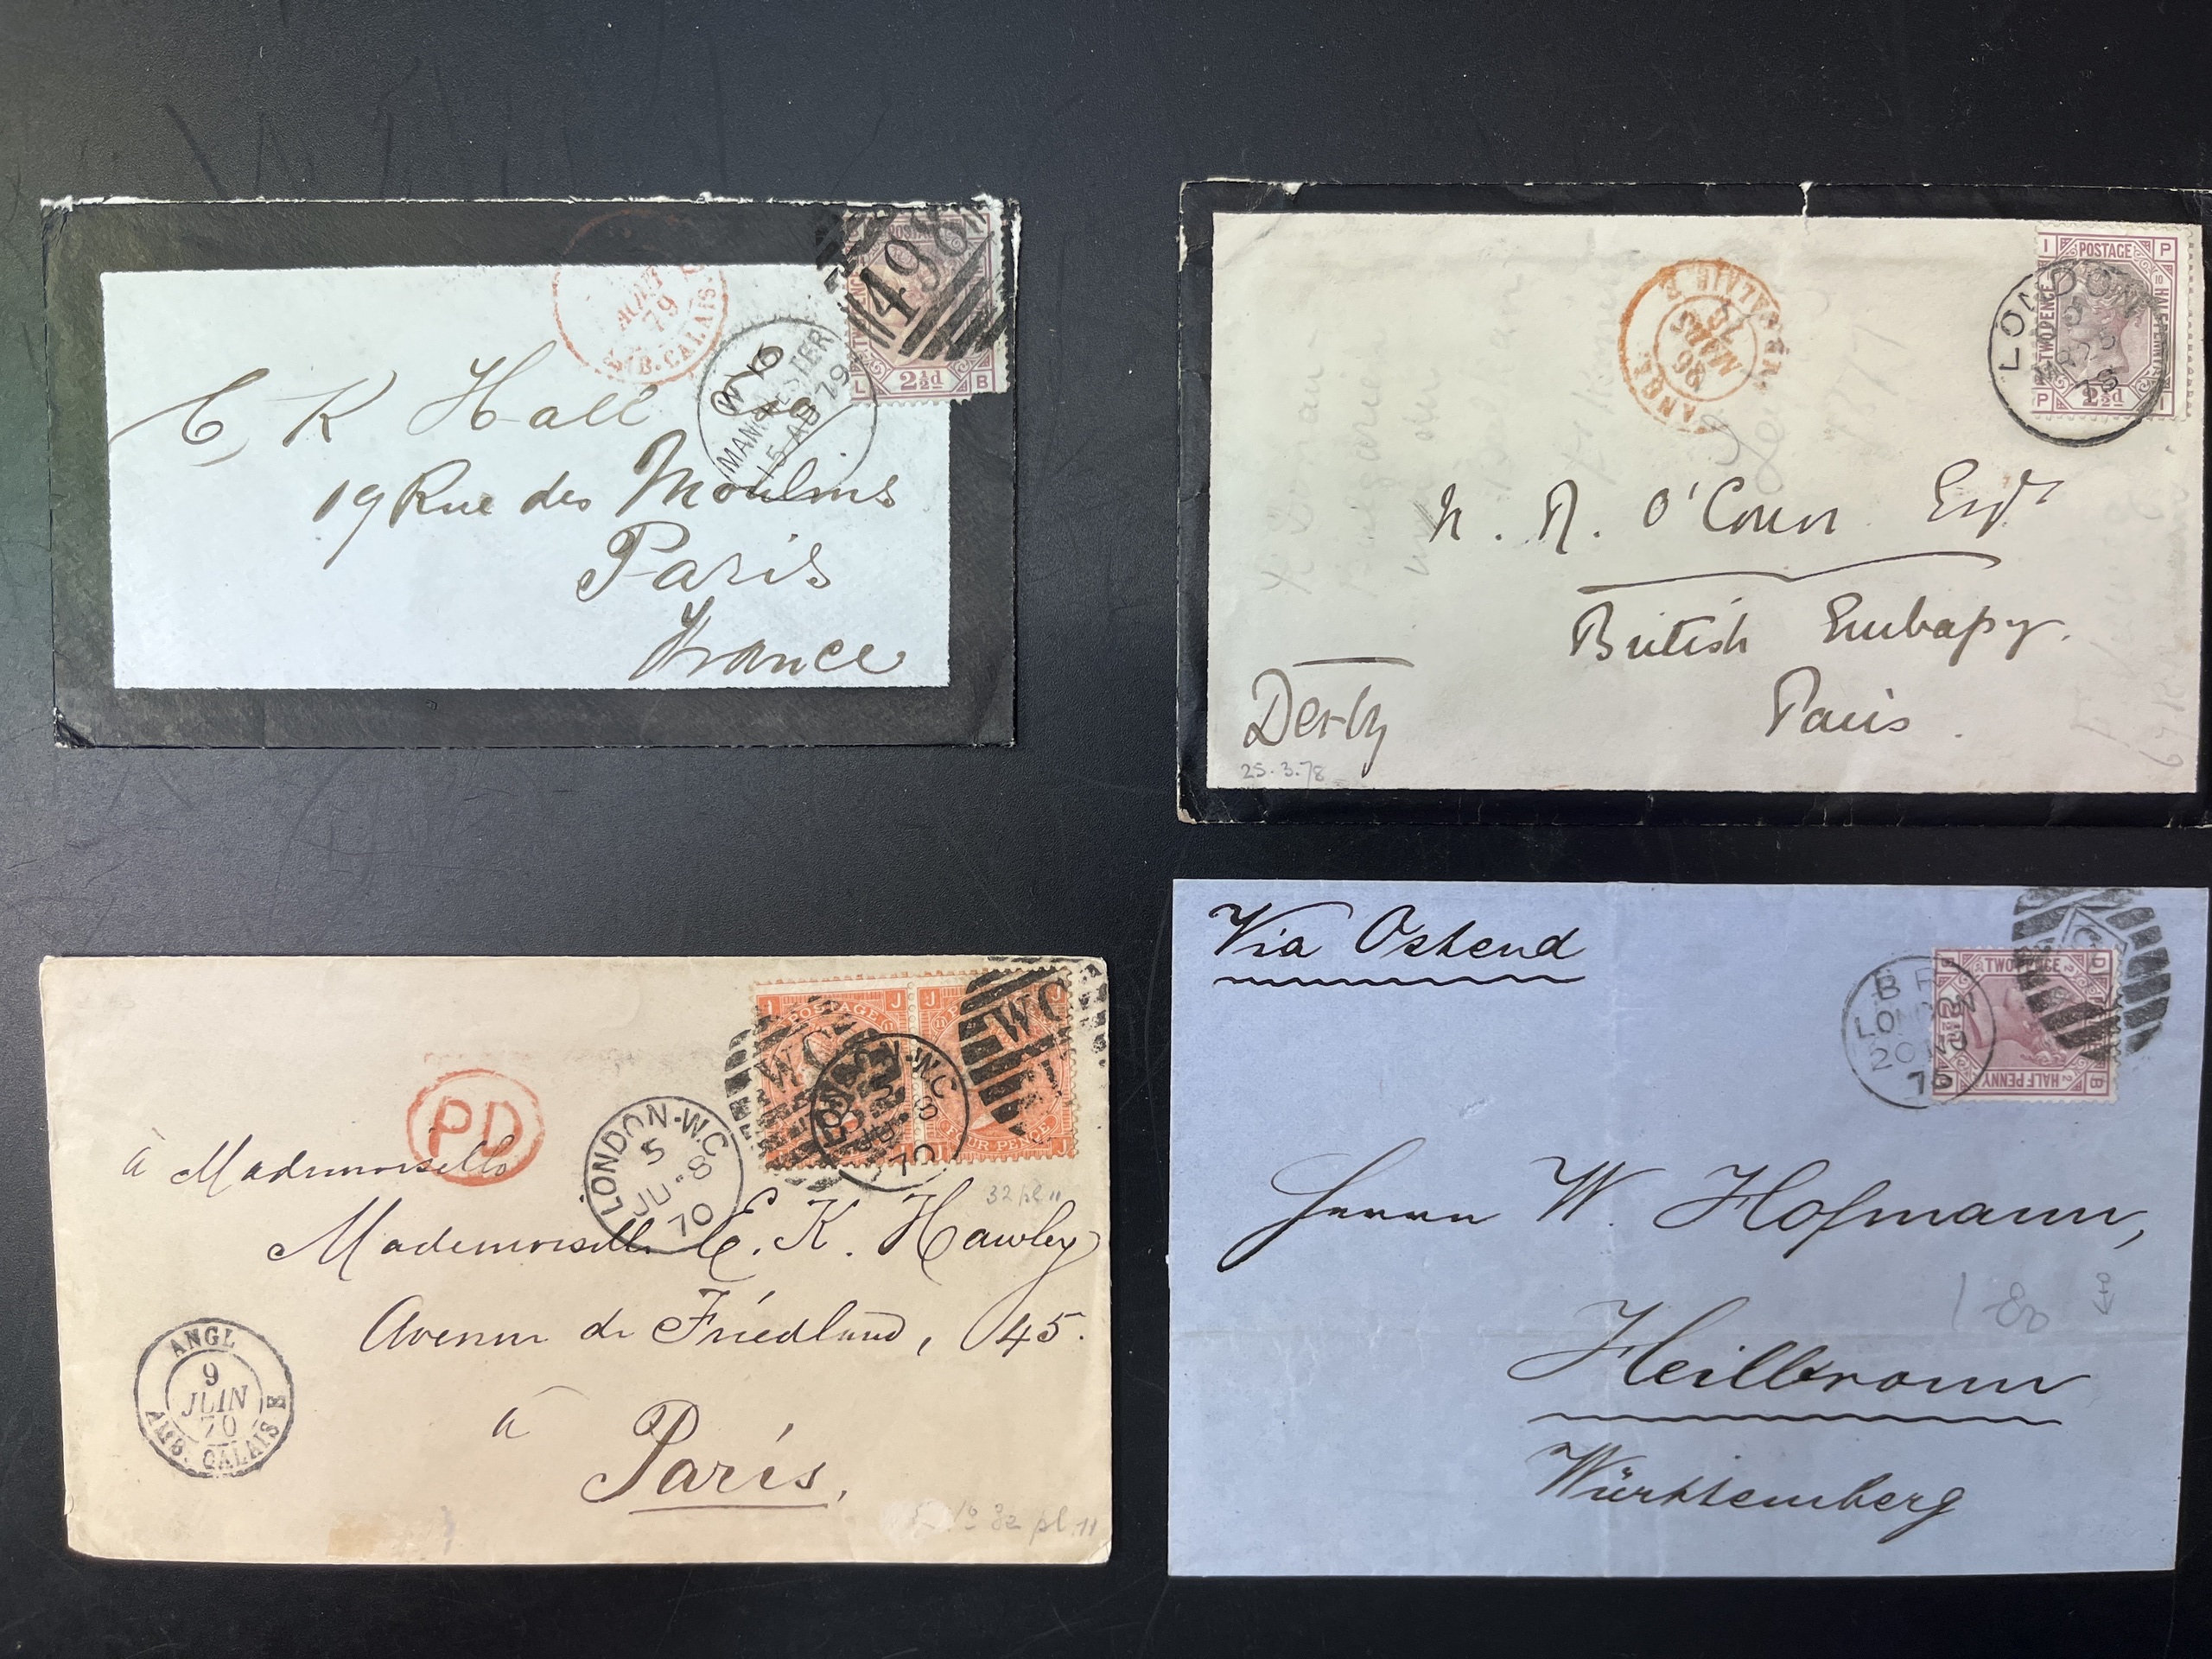 AOUT
79
B. CALAIS
498
POSTAGE
2½d
L B
MANCHESTER
15 AU 79
E K Hall
19 Rue des Moulins
Paris
France
ANGL.
26
MARS
78
LONDON
78
I POSTAGE P
TWOPENCE
HALFPENNY
P 2½d I
N. R. O'Conor Esqr
British Embassy.
Paris.
Derby
25.3.78
PD
LONDON·W.C
5
JU·8
70
WC
W.C
8
70
WC
I POSTAGE J
J
FOUR PENCE J
32 pl 11
à Mademoiselle
Mademoiselle E. K. Hawley
Avenue de Friedland, 45.
à
Paris,
ANGL
9
JUIN
70
AMB. CALAIS E
pl. 11
Via Ostend
LONDON
20
TWOPENCE
HALFPENNY
B
Herrn W. Hofmann,
Heilbronn
Württemberg